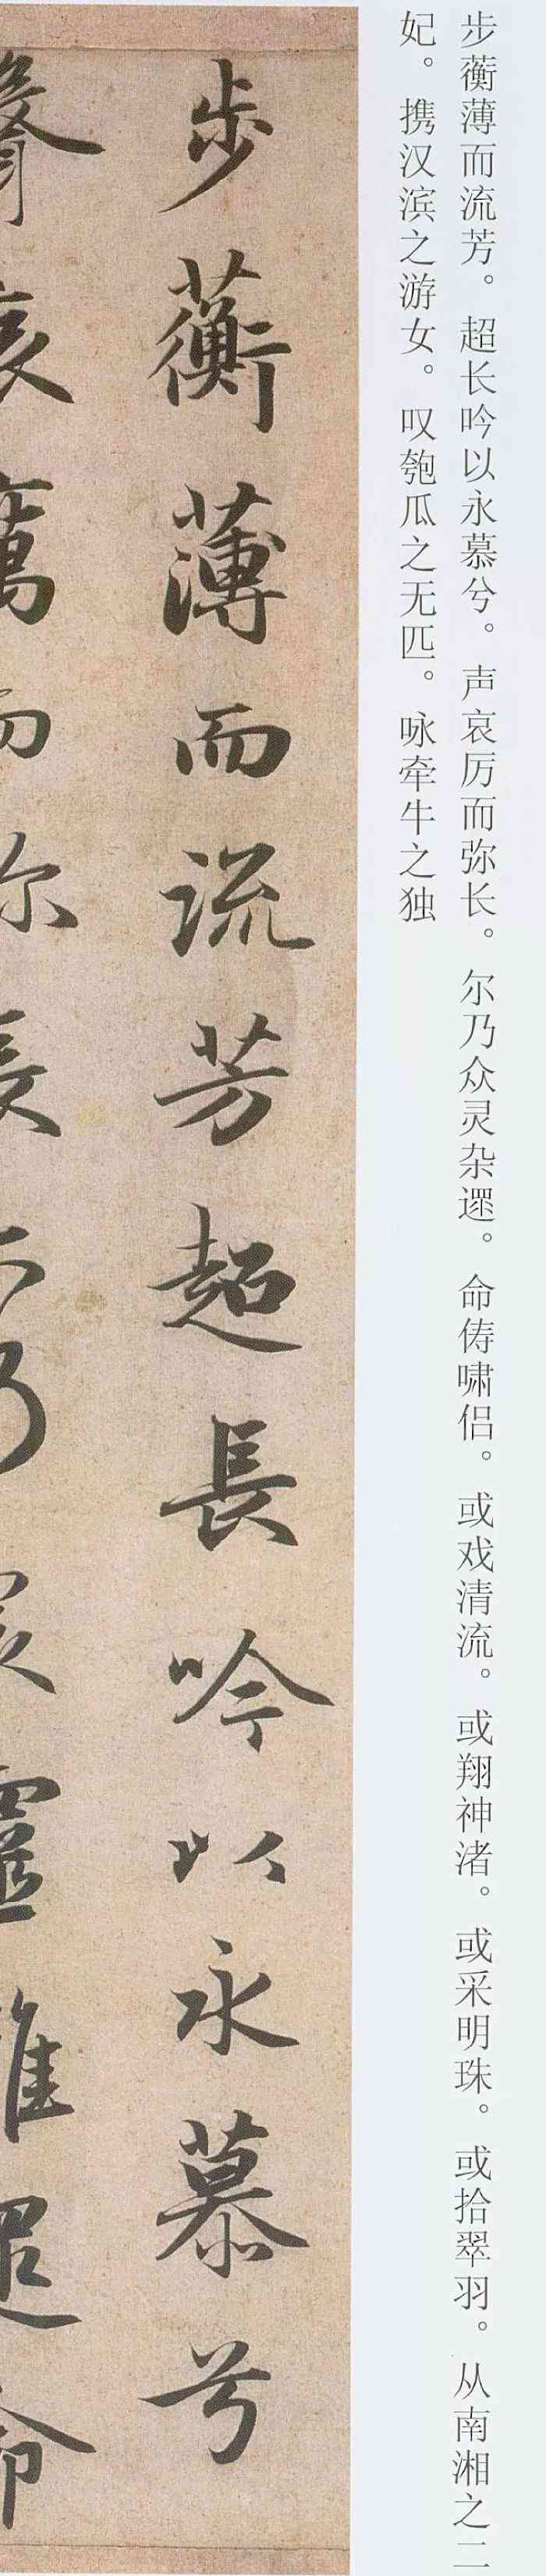 步蘅薄而流芳。超长吟以永慕兮。声哀厉而弥长。尔乃众灵杂遝。命俦啸侣。或戏清流。或翔神渚。或采明珠。或拾翠羽。从南湘之二
妃。携汉滨之游女。叹匏瓜之无匹。咏牵牛之独
步蘅薄而流芳超長吟以永慕兮
聲哀厲而弥長尓乃衆靈雜遝命